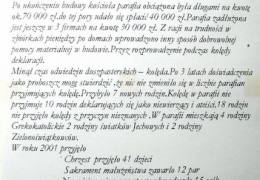 Po ukończeniu budowy kościoła parafia obciążona była długami na kwotę
ok.70 000 zł.do tej pory udało się spłacić 40 000 zł.Parafia zadłużona
jest jeszcze w 3 firmach na kwotę 30 000 zł. Z racji na trudności w
zbiórkach pieniędzy po domach wprowadzono inny sposób dobrowolnej
pomocy materialnej w budowie.Przez rozprowadzenie podczas kolędy
deklaracji.
Minął czas odwiedzin duszpasterskich – kolęda.Po 3 latach doświadczenia
jako proboszcz mogę stwierdzić ,że nic nie zmieniło się w liczbie parafian
przyjmujących kolędę.Przybyło 7 nowych rodzin.Kolędę w parafii nie
przyjmuje 10 rodzin deklarujących się jako niewierzący i ateiści.18 rodzin
nie przyjęło kolędy z przyczyn nieznanych .W parafii mieszkają 4 rodziny
Grekokatolickie 2 rodziny świadków Jechowych i 2 rodziny
Zielonoświątkowców.
W roku 2001 przyjęło
Chrzest przyjęło 41 dzieci
Sakrament małżeństwa zawarło 12 par